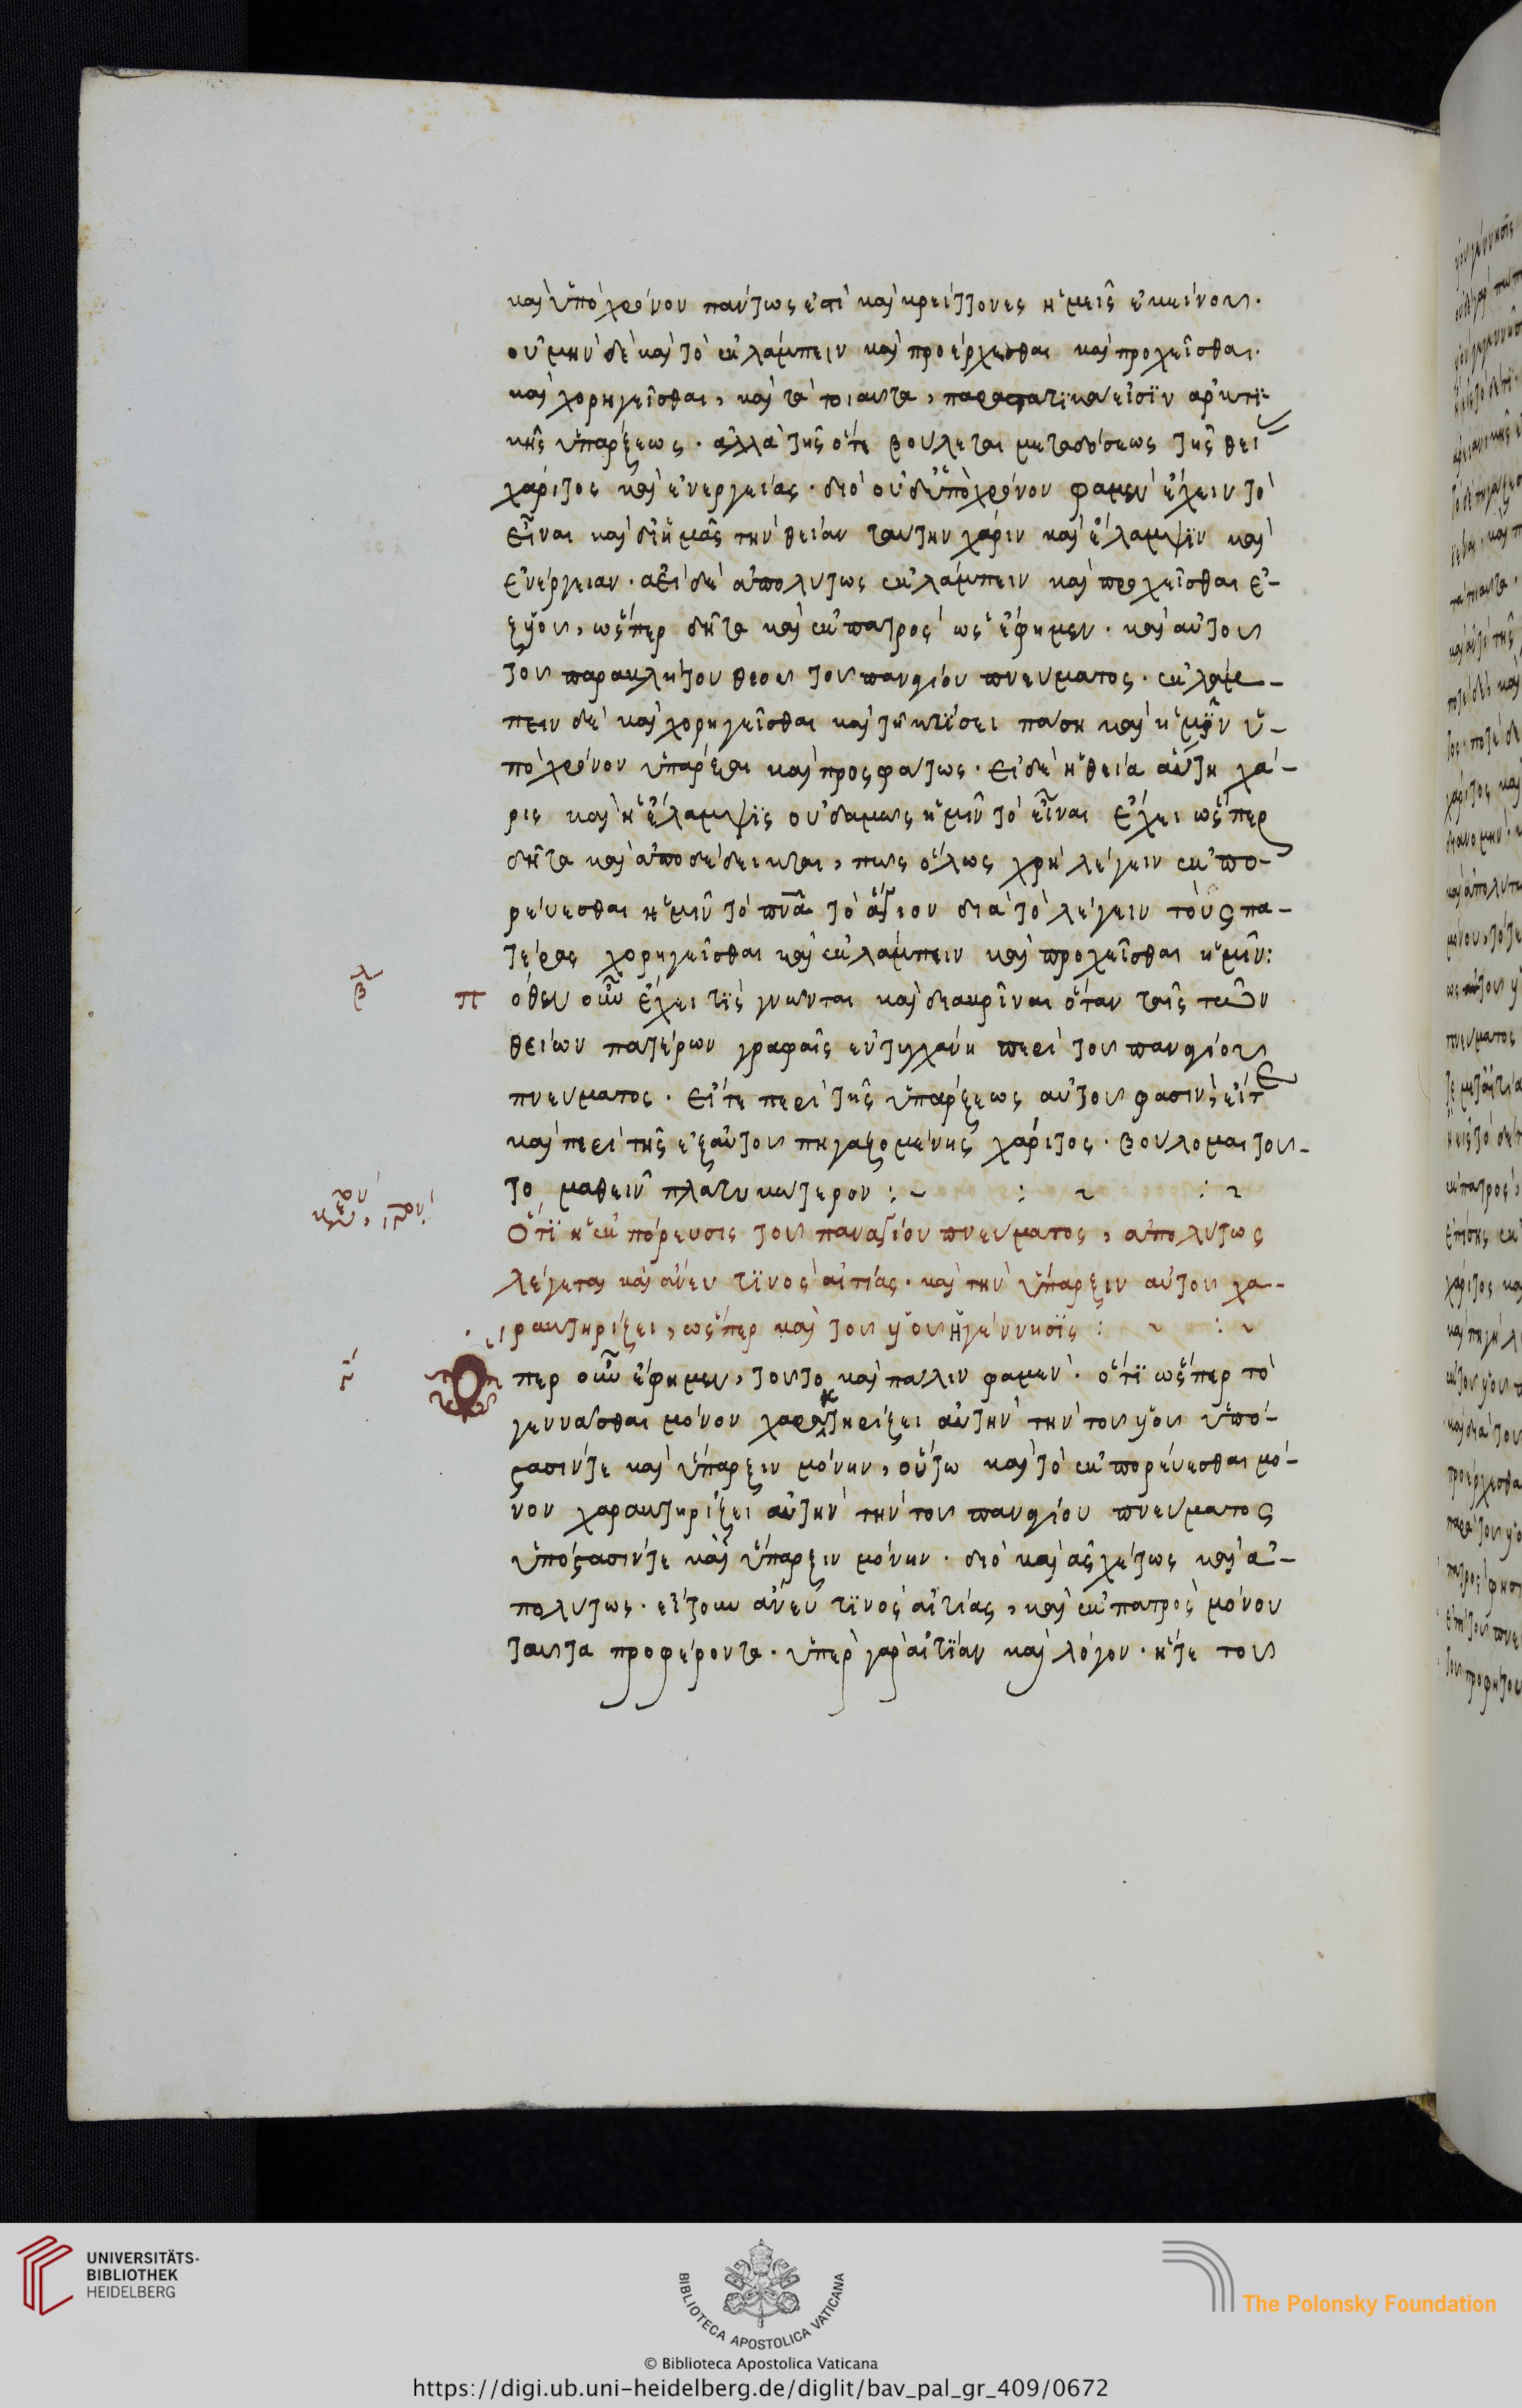 καὶ ὑπὸ χρόνον πάντως ἐστὶ καὶ κρείττονες ἡμεῖς ἐκείνου.
οὐ μὴν δὲ καὶ τὸ ἐκλάμπειν καὶ προέρχεσθαι καὶ προχεῖσθαι.
καὶ χορηγεῖσθαι, καὶ τὰ τοιαυτα, παραστατϊκα εἰσϊν ἀρκτϊ-
κῆς ὑπαρξεως. ἀλλὰ τῆς ὅτε βουλεται μεταδόσεως τῆς θεί
χάριτος καὶ ἐνεργείας. διὸ οὐδ' ὑπὸ χρόνον φαμεν ἔχειν τὸ
εἶναι καὶ δι ἡμᾶς τὴν θείαν ταυτην χάριν καὶ ἔλαμψϊν καὶ
ἐνέργειαν. ἀεὶ δὲ ἀπολυτως ἐκλάμπειν καὶ προχεῖσθαι ἐ-
ξ υἱου, ὥσπερ δῆτα καὶ ἐκ πατρὸς ὡς ἔφημεν. καὶ αὐτου
του παρακλήτου θεου του παναγίου πνευματος. ἐκλάμ-
πειν δὲ καὶ χορηγεῖσθαι καὶ τῆ κτίσει πάση καὶ ἡμῖν ὑ-
πὸ χρόνον ὑπάρξαι καὶ προσφάτως. εἰ δὲ ἡ θεία αὕτη χά-
ρις καὶ ἡ ἔλαμψϊς οὐδαμως ἡμῖν τὸ εἶναι ἔχει ὥσπερ
δῆτα καὶ ἀποδέδεικται, πως ὅλως χρὴ λέγειν ἐκπο-
ρεύεσθαι ἡμῖν τὸ πνᾶ τὸ ἅγιον διὰ τὸ λέγειν τοὺς πα-
τέρας χορηγεῖσθαι καὶ ἐκλάμπειν καὶ προχεῖσθαι ἡμῖν:
ὅθεν οὖν ἔχει τϊς γνωναι καὶ διακρῖναι ὅταν ταῖς τῶν
θείων πατέρων γραφαῖς ἐντυγχάνη περὶ του παναγίου
πνευματος. εἴτε περὶ τῆς ὑπάρξεως αὐτου φασιν, εἴτε
καὶ περὶ τῆς ἐξ αὐτου πηγαζομένης χάριτος. βουλομαι του-
το μαθεῖν πλατυκωτερον :~ : ~ : ~
Ὅτϊ ἡ ἐκπόρευσις του παναγίου πνευματος, ἀπολυτως
λέγεται καὶ ἄνευ τϊνὸς αἰτίας. καὶ τὴν ὕπαρξιν αὐτου χα-
ρακτηρίζει, ὥσπερ καὶ του υἱου ἡ γέννησϊς : ~ : ~
Ὅπερ οὖν ἔφημεν, τουτο καὶ παλιν φαμέν. ὅτϊ ὥσπερ τὸ
γεννασθαι μόνον χαρακτηρίζει αὐτὴν τὴν του υἱου ὑπό-
στασίν τε καὶ ὕπαρξιν μόνην, οὕτω καὶ τὸ ἐκπορεύεσθαι μό-
νον χαρακτηρίζει αὐτὴν τὴν του παναγίου πνευματος
ὑπόστασίν τε καὶ ὕπαρξιν μόνην. διὸ καὶ ἀσχέτως καὶ ἀ-
πολυτως. εἴτουν ἄνευ τϊνὸς αἰτίας, καὶ ἐκ πατρὸς μόνου
ταυτα προφέρονται. ὑπὲρ γὰρ αἰτϊαν καὶ λόγον. ἥ τε του
UNIVERSITÄTS-
BIBLIOTHEK
HEIDELBERG
BIBLIOTECA APOSTOLICA VATICANA
The Polonsky Foundation
© Biblioteca Apostolica Vaticana
https://digi.ub.uni-heidelberg.de/diglit/bav_pal_gr_409/0672